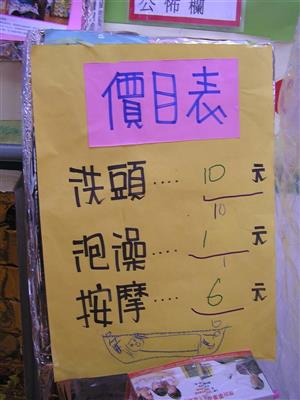 公佈欄
價目表
洗頭····10元
10
泡澡····1元
1
按摩····6元
10